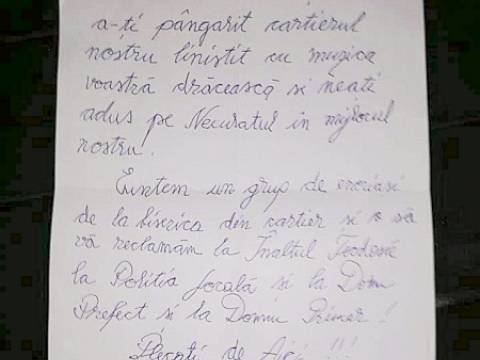 a-ti pângarit cartierul
nostru linistit cu muzica
voastră drăcească si neati
adus pe Necuratul in mijlocul
nostru.
Suntem un grup de enoriasi
de la biserica din cartier si o să
vă reclamăm la Înaltul Teodosie
la Politia locală si la Domn
Prefect si la Domnu Primar!
Plecati de Aici !!!